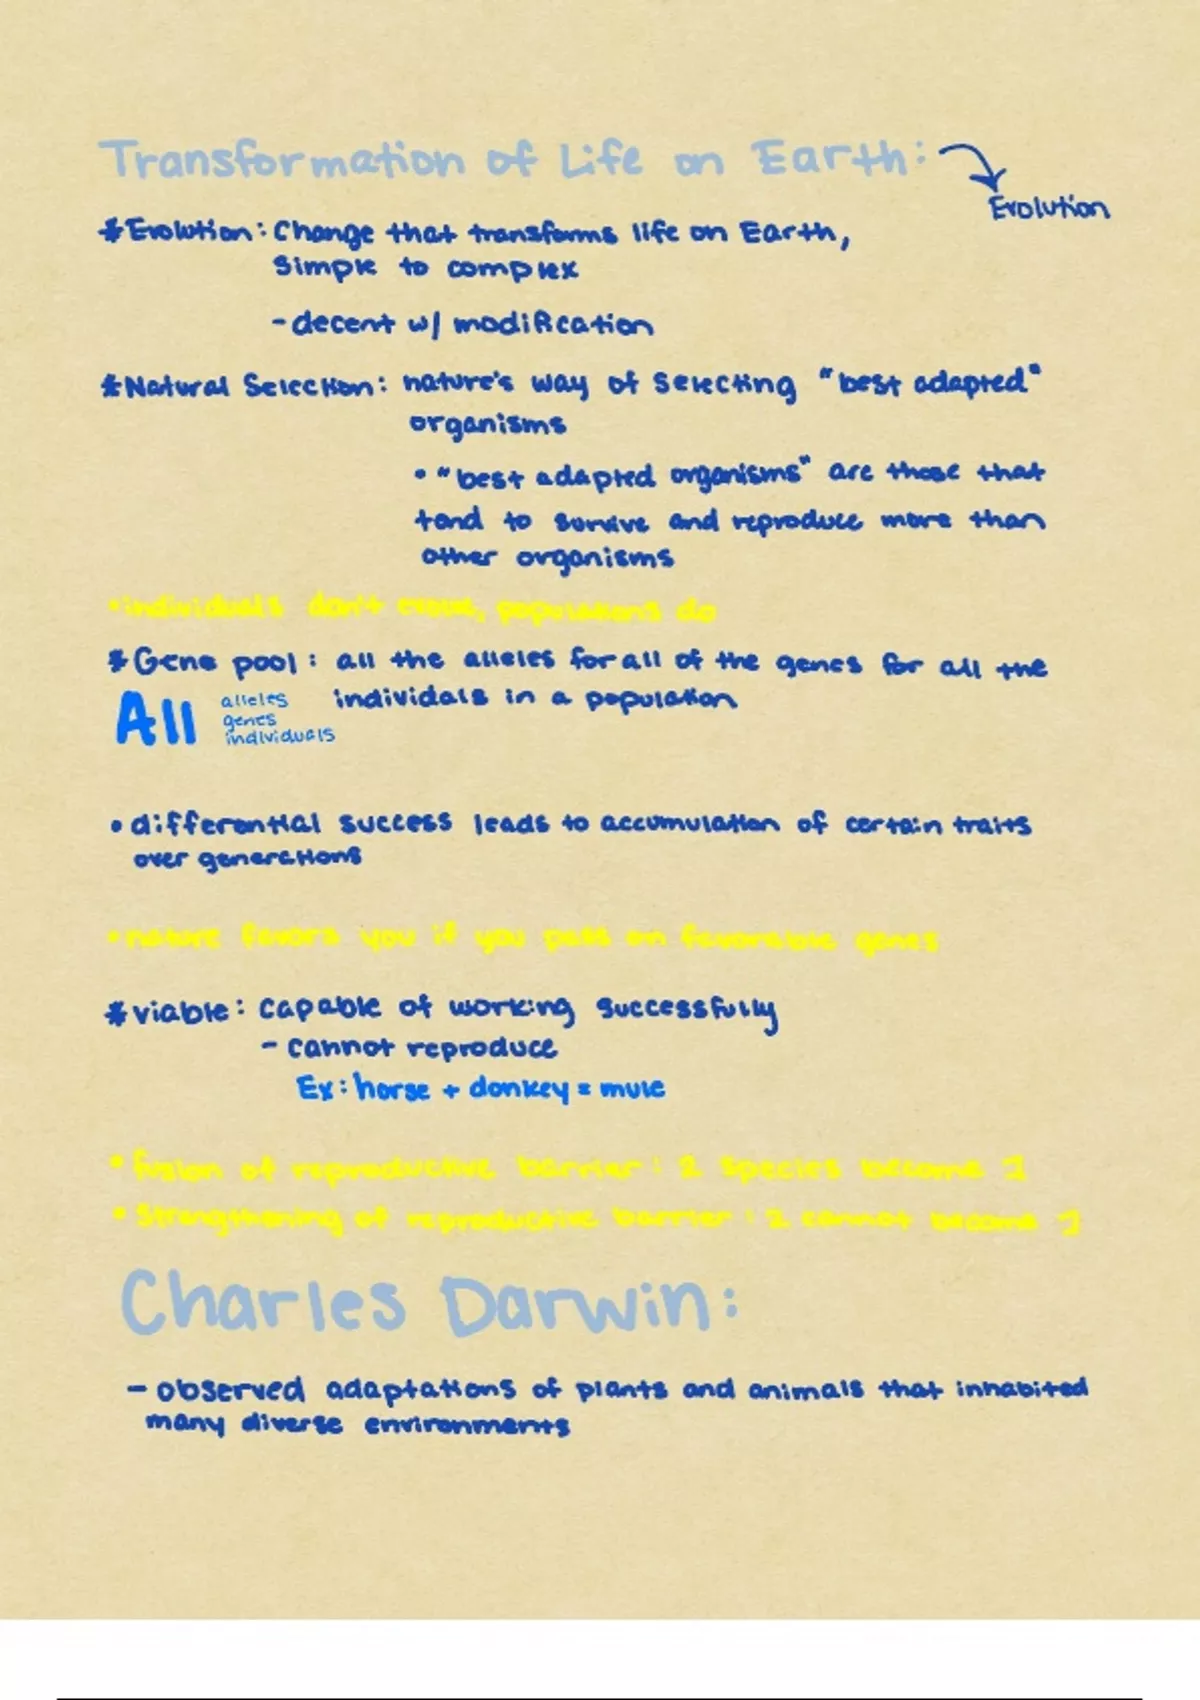 Transformation of Life on Earth:
Evolution
*Evolution: Change that transforms life on Earth,
simple to complex
- decent w/ modification
*Natural Selection: nature's way of selecting "best adapted"
organisms
• "best adapted organisms" are those that
tend to survive and reproduce more than
other organisms
• individuals don't evolve, populations do
*Gene pool: all the alleles for all of the genes for all the
individals in a population
All
alleles
genes
individuals
• differential success leads to accumulation of certain traits
over generations
• nature favors you if you pass on favorable genes
*viable: capable of working successfully
- cannot reproduce
Ex: horse + donkey = mule
• fusion of reproductive barrier: 2 species become 1
• Strengthening of reproductive barrier: 2 cannot become 1
Charles Darwin:
- observed adaptations of plants and animals that inhabited
many diverse environments